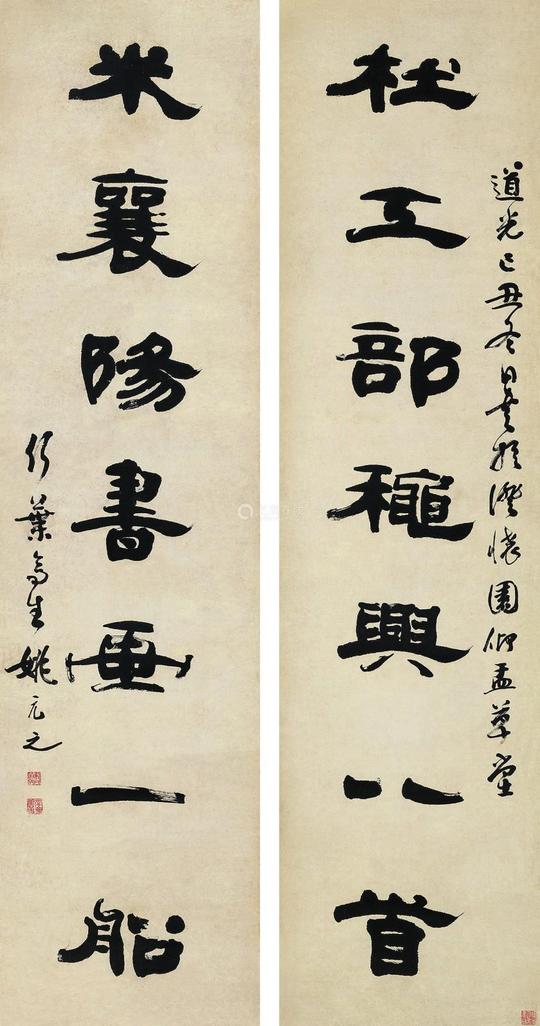 道光己丑冬日書於澄懷園仰盂草堂
杜工部穐興八首
米襄陽書畫一船
竹葉亭生姚元之